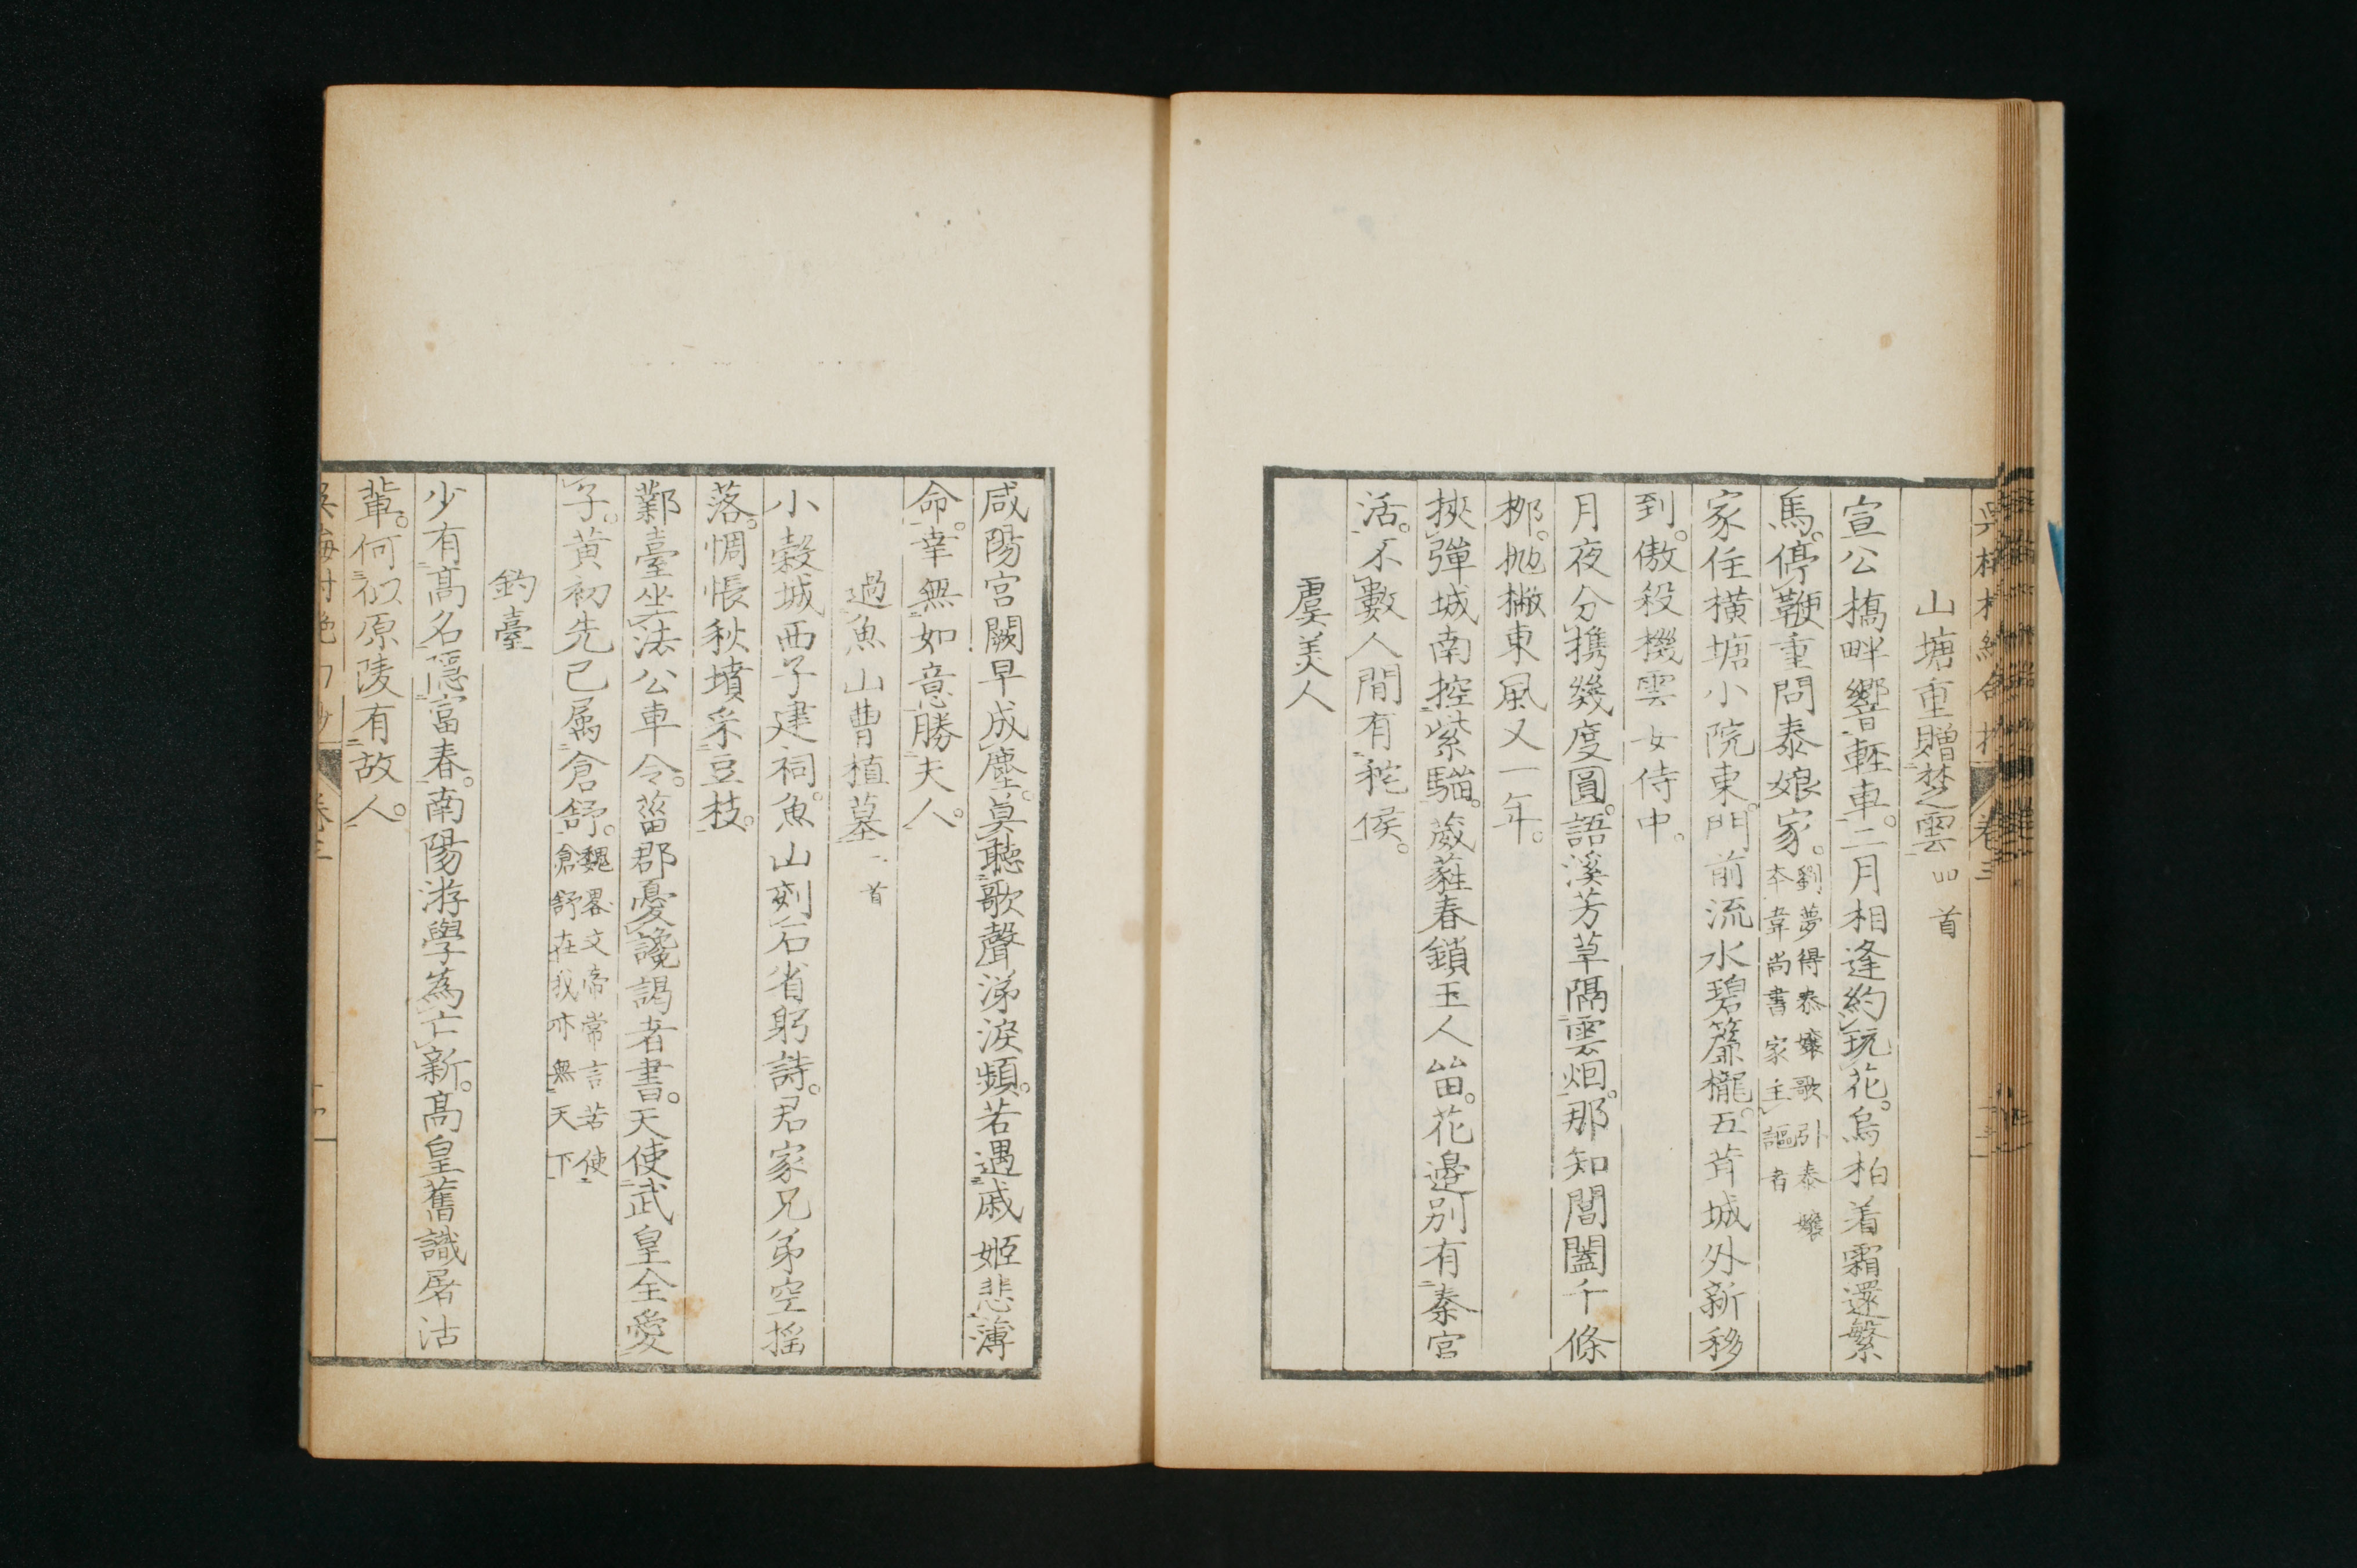 山塘重贈楚雲四首
宣公橋畔響軽車。二月相逢約玩花。烏桕着霜還繫
馬。停鞭重問泰娘家。劉夢得泰孃歌引泰孃
本韋尚書家主謳者
家住橫塘小院東。門前流水碧簾櫳。五茸城外新移
到。傲殺機雲女侍中。
月夜分携幾度圓。語溪芳草隔雲烟。那知閶闔千條
栁。抛撇東風又一年。
挾彈城南控紫騮。葳蕤春鎖玉人留。花邊別有秦宮
活。不數人間有秺侯。
虞美人
咸陽宮闕早成塵。莫聽歌聲涕淚頻。若遇戚姬悲薄
命。幸無如意勝夫人。
過魚山曹植墓二首
小穀城西子建祠。魚山刻石省躬詩。君家兄弟空搖
落。惆悵秋墳采豆枝。
鄴臺坐法公車令。菑郡憂讒謁者書。天使武皇全愛
子。黃初先已屬倉舒。魏畧文帝常言若使
倉舒在我亦無天下
釣臺
少有高名隱富春。南陽游學為亡新。高皇舊識屠沽
輩。何似原陵有故人。
卷三